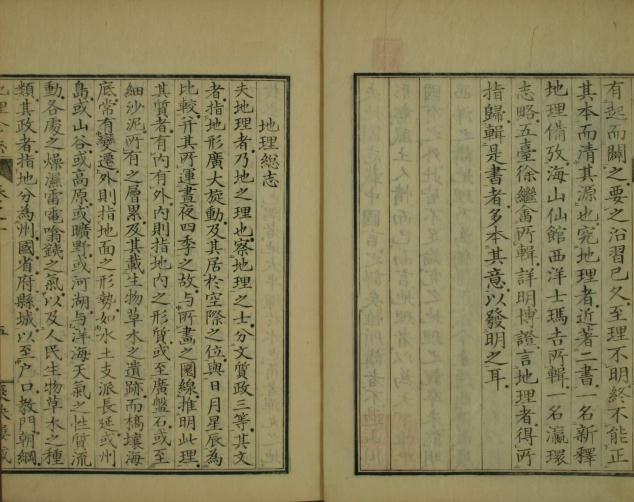 有起而闢之要之沿習已久至理不明終不能正
其本而清其源也究地理者近著二書一名新釋
地理備攷海山仙館西洋士瑪吉所輯一名瀛環
志略五臺徐繼畬所輯詳明博證言地理者得所
指歸輯是書者多本其意以發明之耳
地理總志
夫地理者乃地之理也察地理之士分文質政三等其文
者指地形廣大旋動及其居於空際之位與日月星辰為
比較幷其所運晝夜四季之故與所畫之圈線推明此理
其質者有內有外內則指地內之形質或至廣盤石或至
細沙泥所有之層累及其載生物草木之遺跡而槗壤海
底常有變遷外則指地面之形勢如水土支派長延或州
島或山谷或高原或曠野或河湖與洋海天氣之性質流
動各處之燥濕雷電噏鐵之氣以及人民生物草木之種
類其政者指地分為州國省府縣城以至戶口教門朝綱